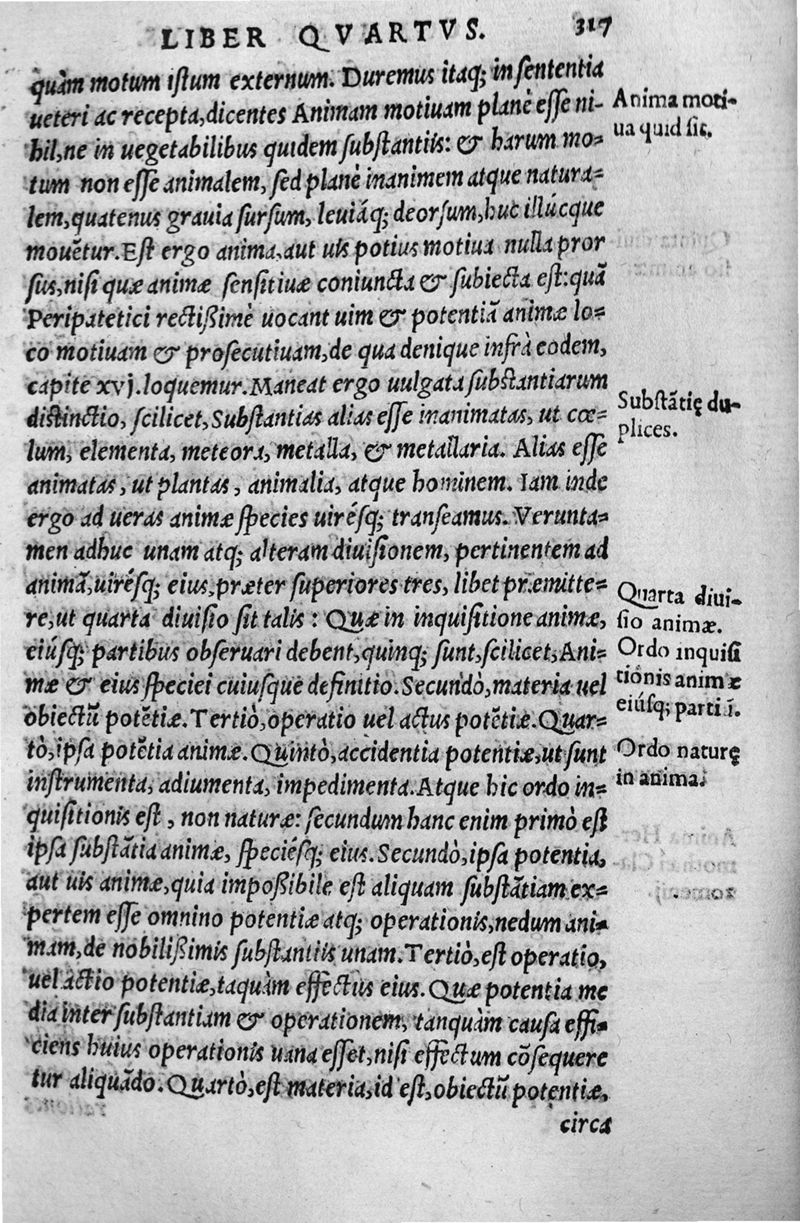 LIBER QVARTVS. 317
quàm motum istum externum. Duremus itaq; in sententia
ueteri ac recepta, dicentes Animam motiuam planè esse ni-
hil, ne in uegetabilibus quidem substantiis: & harum mo-
tum non esse animalem, sed planè inanimem atque natura-
lem, quatenus grauia sursum, leuiáq; deorsum, huc illúcque
mouẽtur. Est ergo anima, aut uis potius motiua nulla pror
sus, nisi quæ animæ sensitiuæ coniuncta & subiecta est: quã
Peripatetici rectißimè uocant uim & potentiã animæ lo-
co motiuam & prosecutiuam, de qua denique infrà eodem,
capite xvj. loquemur. Maneat ergo uulgata substantiarum
distinctio, scilicet, Substantias alias esse inanimatas, ut cœ-
lum, elementa, meteora, metalla, & metallaria. Alias esse
animatas, ut plantas, animalia, atque hominem. Iam inde
ergo ad ueras animæ species uirésq; transeamus. Verunta-
men adhuc unam atq; alteram diuisionem, pertinentem ad
animã, uirésq; eius, præter superiores tres, libet præmitte-
re, ut quarta diuisio sit talis: Quæ in inquisitione animæ,
eiúsq; partibus obseruari debent, quinq; sunt, scilicet, Ani-
mæ & eius speciei cuiusque definitio. Secundò, materia uel
obiectũ potẽtiæ. Tertiò, operatio uel actus potẽtiæ. Quar-
tò, ipsa potẽtia animæ. Quintò, accidentia potentiæ, ut sunt
instrumenta, adiumenta, impedimenta. Atque hic ordo in-
quisitionis est, non naturæ: secundum hanc enim primò est
ipsa substãtia animæ, speciésq; eius. Secundò, ipsa potentia,
aut uis animæ, quia impoßibile est aliquam substãtiam ex-
pertem esse omnino potentiæ atq; operationis, nedum ani-
mam, de nobilißimis substantiis unam. Tertiò, est operatio,
uel actio potentiæ, taquàm effectus eius. Quæ potentia me
dia inter substantiam & operationem, tanquàm causa effi-
ciens huius operationis uana esset, nisi effectum cõsequere
tur aliquãdo. Quartò, est materia, id est, obiectũ potentiæ,
circa
Anima moti-
ua quid sit.
Substãtię du-
plices.
Quarta diui-
sio animæ.
Ordo inquisi
tionis animæ
eiusq; parti ũ.
Ordo naturę
in anima.